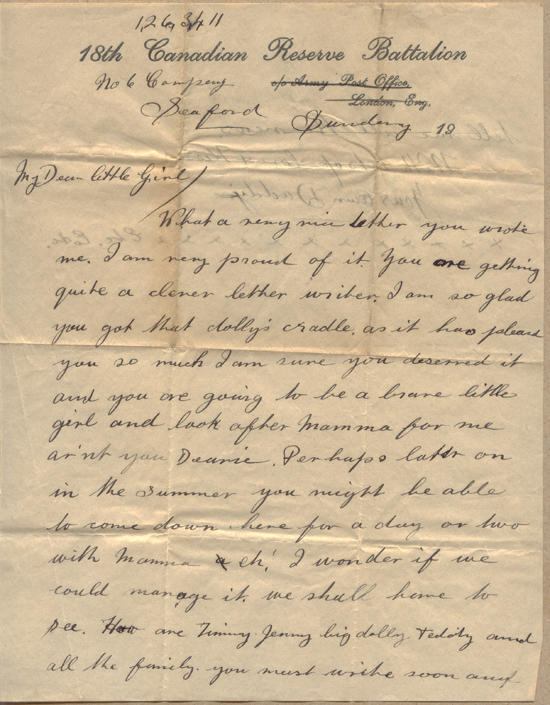 1263411
18th Canadian Reserve Battalion
No 6 Company c/o Army Post Office,
London, Eng.
Seaford Sunday 19
My Dear little Girl
What a very nice letter you wrote
me. I am very proud of it. You are getting
quite a clever letter writer. I am so glad
you got that dolly's cradle, as it has pleased
you so much I am sure you deserved it
and you are going to be a brave little
girl and look after Mamma for me
ar'nt you Dearie. Perhaps later on
in the summer you might be able
to come down here for a day or two
with Mamma eh! I wonder if we
could manage it. we shall have to
see. How are Timmy Jenny big dolly Teddy and
all the family. you must write soon and